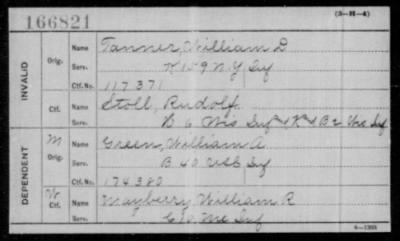 166821
(3-H-4)
INVALID
Orig.
Name Tanner, William D
Serv. K 159 N.Y Inf
Ctf. No. 117371
Ctf.
Name Stoll, Rudolf
Serv. B 6 Wis Inf & K & B 2 Wis Inf
DEPENDENT
M
Orig.
Name Green, William A
Serv. B 40 USC Inf
Ctf. No. 174380
W
Ctf.
Name Mayberry William R
Serv. C 10 Me Inf
6-1303